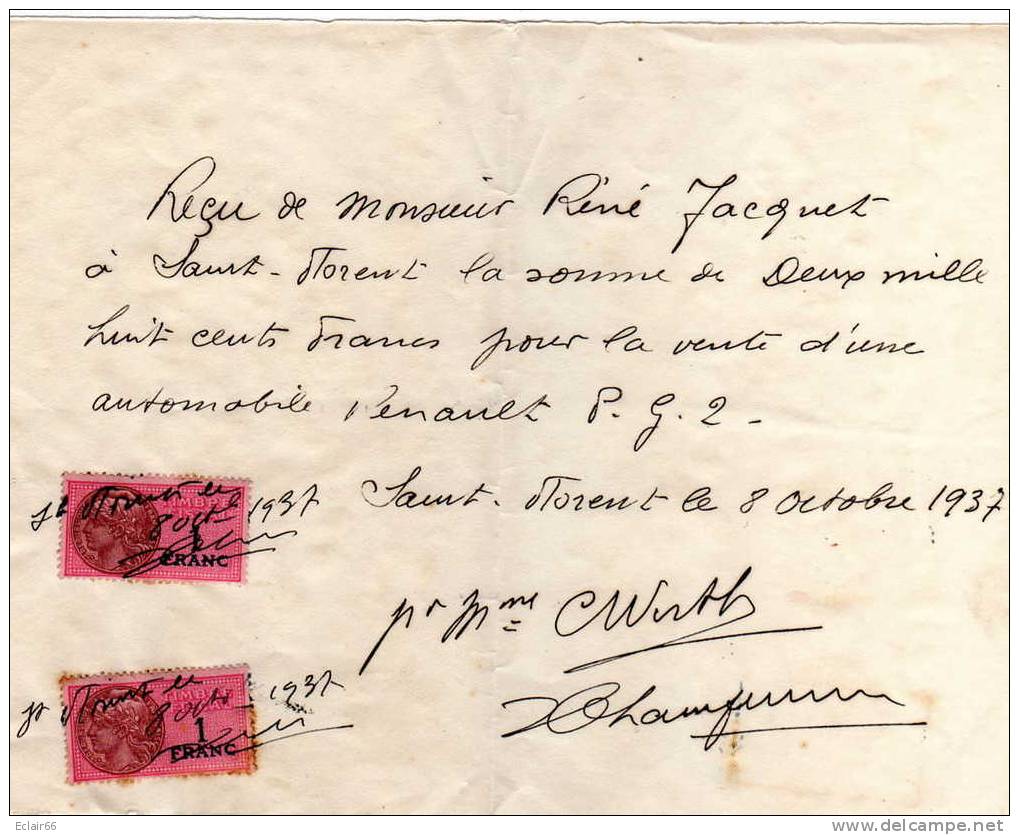 Reçu de Monsieur Réné Jacquet
à Saint-Florent la somme de Deux mille
huit cents Francs pour la vente d'une
automobile Renault P.G.2-
Saint-Florent le 8 Octobre 1937
St Florent le
8 Oct 1937
TIMBRE
1
FRANC
pr Mme CWirth
St Florent le
8 Oct 1937
1
FRANC
Eclair66
delcampe.net